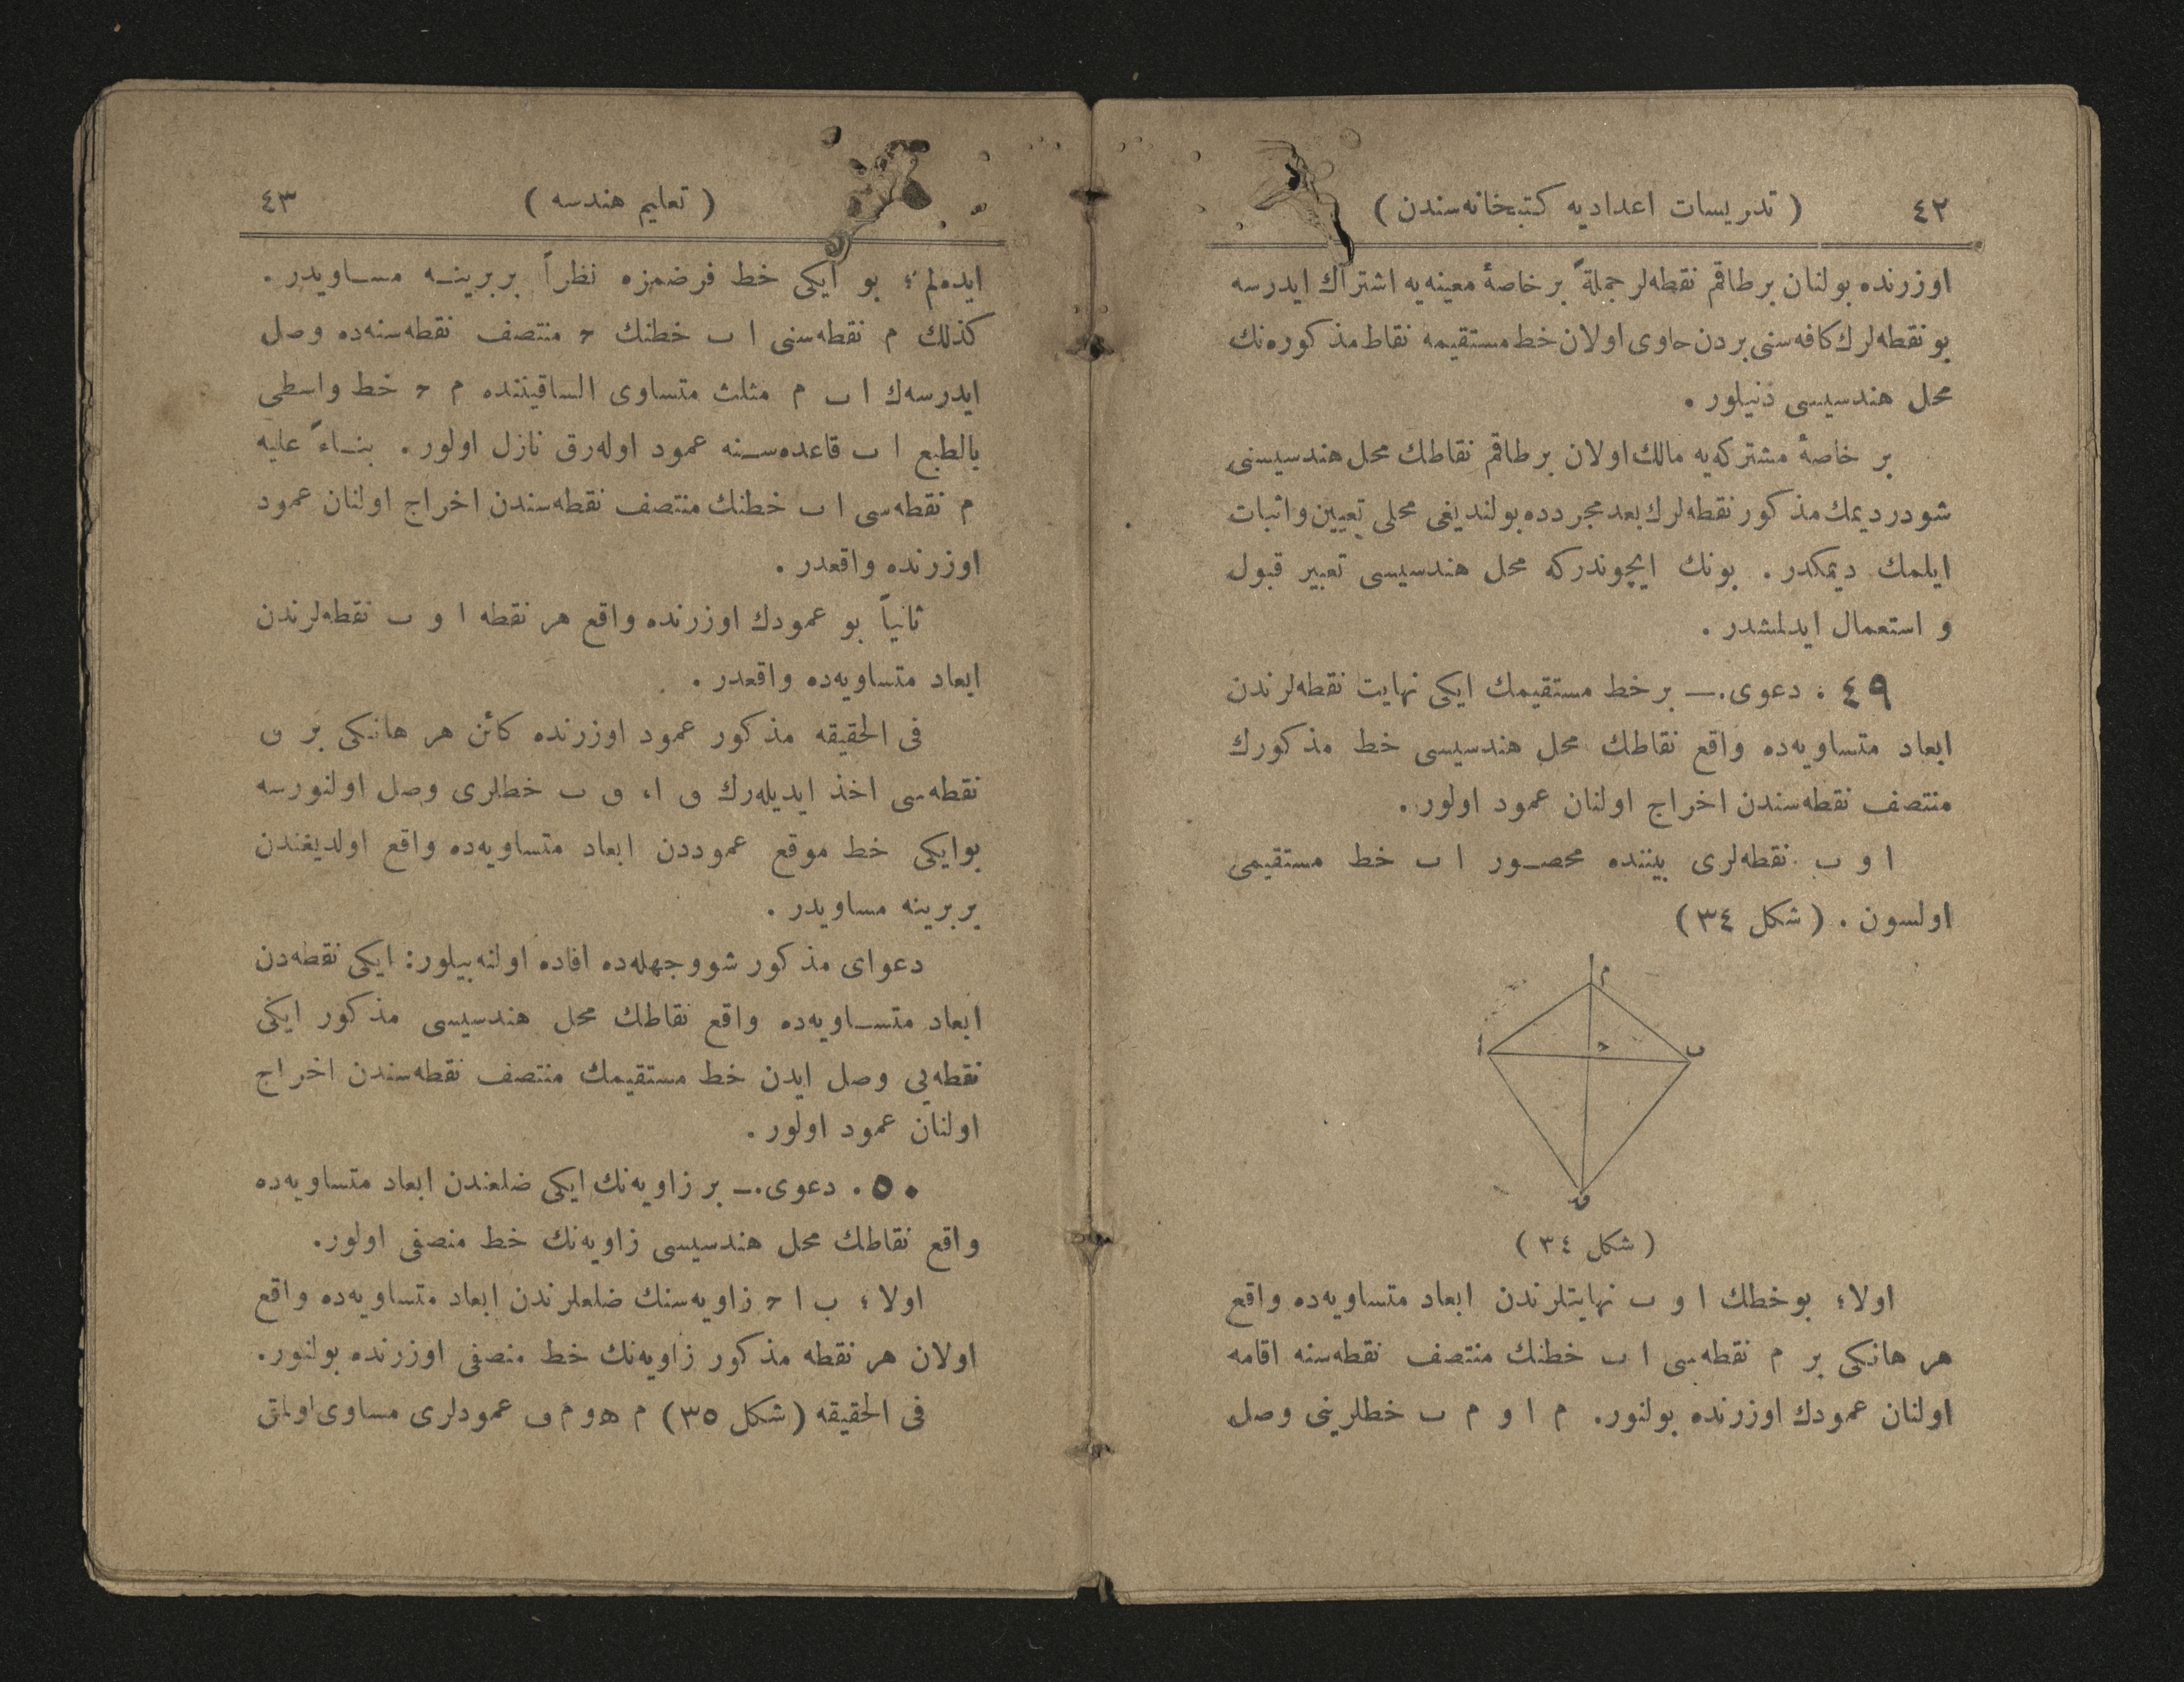 ٤٢
( تدریسات اعدادیه کتبخانه‌سندن )
اوزرنده بولنان بر طاقم نقطه‌لر جملةً بر خاصهٔ معینه‌یه اشتراك ایدرسه
بو نقطه‌لرك كافه‌سنی بردن حاوی اولان خط مستقیمه نقاط مذكوره‌نك
محل هندسیسی دنیلور .
بر خاصهٔ مشتركه‌یه مالك اولان بر طاقم نقاطك محل هندسیسنی
شودر دیمك مذكور نقطه‌لرك بعد مجردده بولندیغی محلی تعیین و اثبات
ایلمك دیمكدر . بونك ایچوندركه محل هندسیسی تعبیر قبول
و استعمال ایدلمشدر .
٤٩ . دعوی .ــ بر خط مستقیمك ایكی نهایت نقطه‌لرندن
ابعاد متساویه‌ده واقع نقاطك محل هندسیسی خط مذكورك
منتصف نقطه‌سندن اخراج اولنان عمود اولور .
ا و ب نقطه‌لری بیننده محصور ا ب خط مستقیمی
اولسون . ( شكل ٣٤ )
م
ا
ح
ب
ق
( شكل ٣٤ )
اولا ؛ بوخطك ا و ب نهایتلرندن ابعاد متساویه‌ده واقع
هر هانكی بر م نقطه‌سی ا ب خطنك منتصف نقطه‌سنه اقامه
اولنان عمودك اوزرنده بولنور . م ا و م ب خطلرینی وصل
( تعلیم هندسه )
٤٣
ایده‌لم ؛ بو ایكی خط فرضمزه نظراً بربرینه مساویدر .
كذلك م نقطه‌سنی ا ب خطنك ح منتصف نقطه‌سنه‌ده وصل
ایدرسه‌ك ا ب م مثلث متساوی الساقیننده م ح خط واسطی
بالطبع ا ب قاعده‌سنه عمود اوله‌رق نازل اولور . بناءً علیه
م نقطه‌سی ا ب خطنك منتصف نقطه‌سندن اخراج اولنان عمود
اوزرنده واقعدر .
ثانیاً بو عمودك اوزرنده واقع هر نقطه ا و ب نقطه‌لرندن
ابعاد متساویه‌ده واقعدر .
فی الحقیقه مذكور عمود اوزرنده كائن هر هانكی بر ق
نقطه‌سی اخذ ایدیله‌رك ق ا، ق ب خطلری وصل اولنورسه
بوایكی خط موقع عموددن ابعاد متساویه‌ده واقع اولدیغندن
بربرینه مساویدر .
دعوای مذكور شو وجهله‌ده افاده اولنه‌بیلور : ایكی نقطه‌دن
ابعاد متساویه‌ده واقع نقاطك محل هندسیسی مذكور ایكی
نقطه‌یی وصل ایدن خط مستقیمك منتصف نقطه‌سندن اخراج
اولنان عمود اولور .
٥٠ . دعوی .ــ بر زاویه‌نك ایكی ضلعندن ابعاد متساویه‌ده
واقع نقاطك محل هندسیسی زاویه‌نك خط منصفی اولور.
اولا ؛ ب ا ح زاویه‌سنك ضلعلرندن ابعاد متساویه‌ده واقع
اولان هر نقطه مذكور زاویه‌نك خط منصفی اوزرنده بولنور.
فی الحقیقه (شكل ٣٥) م ه و م ف عمودلری مساوی اولمق